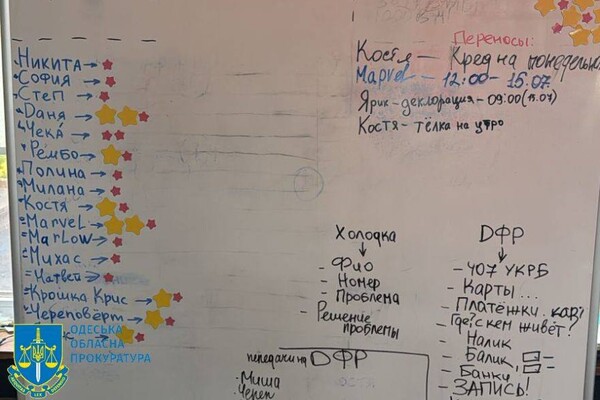 Никита →
София →
Степ →
Даня →
Чека →
Рембо →
Полина →
Милана →
Костя →
Marvel →
Marlow →
Михас →
Матвей →
Крошка Крис →
Череповёрт →
Переносы:
Костя — Кред на понедельник
Marvel — 12:00 - 15.07
Ярик - декларация - 09:00 (15.07)
Костя - тёлка на утро
Холодка
- Фио
- Номер
- Проблема
- Решение проблемы
ДФР
- 407 УКРБ
- Карты...
- Платёжки. как?
Где? с кем живёт?
- Налик
- Балик
- Банки
- ЗАПИСЬ!
передачи на ДФР
- Миша
- Череп
ОДЕСЬКА
ОБЛАСНА
ПРОКУРАТУРА